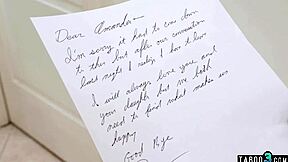 Dear Amanda
I'm sorry it had to come down
to this but after our conversation
last night I realize I have to leave
I will always love you and
your daughter but we both
need to find what makes us
happy
Good Bye
TABOO